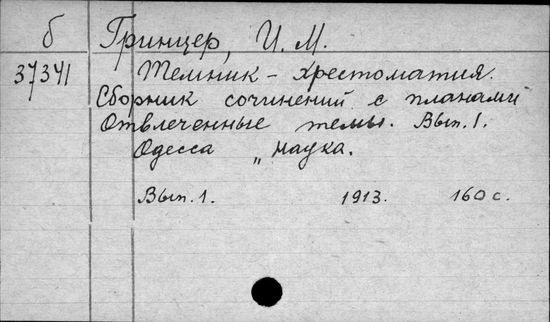 б Гринцер, И. М.
37341 Темник - хрестоматия.
Сборник сочинений с планами
Отвлеченные темы. Вып. 1.
Одесса „Наука.
Вып. 1. 1913. 160 с.